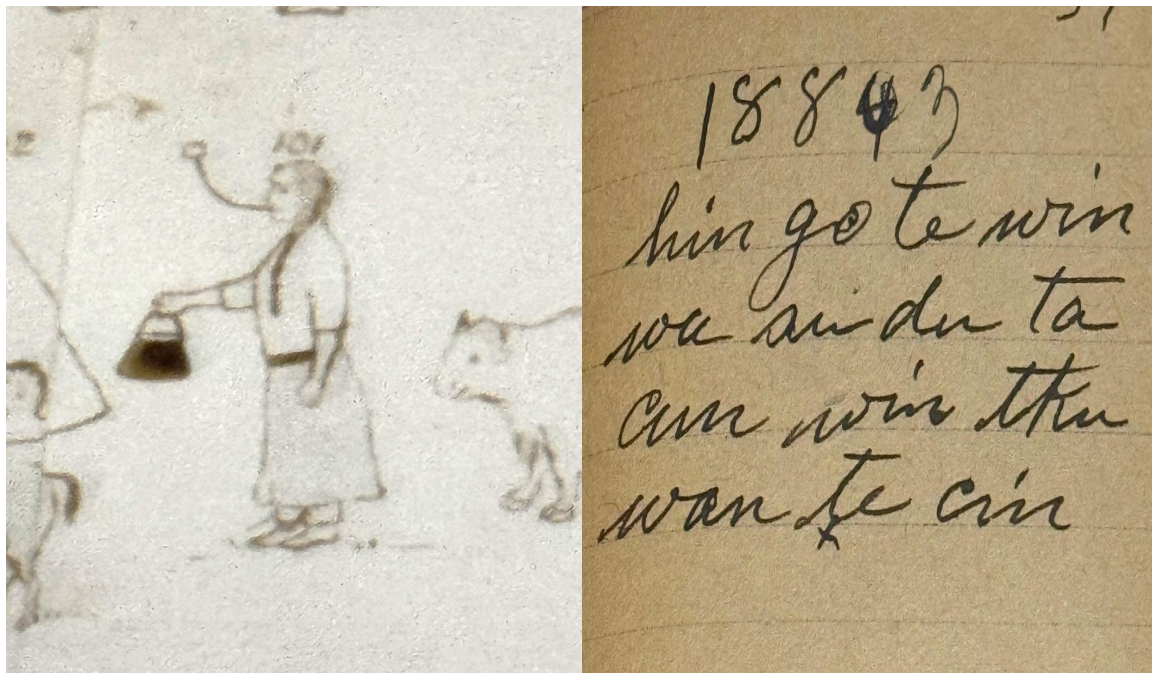 101
1883
hin go te win
wa su du ta
cun win tku
wan te cin